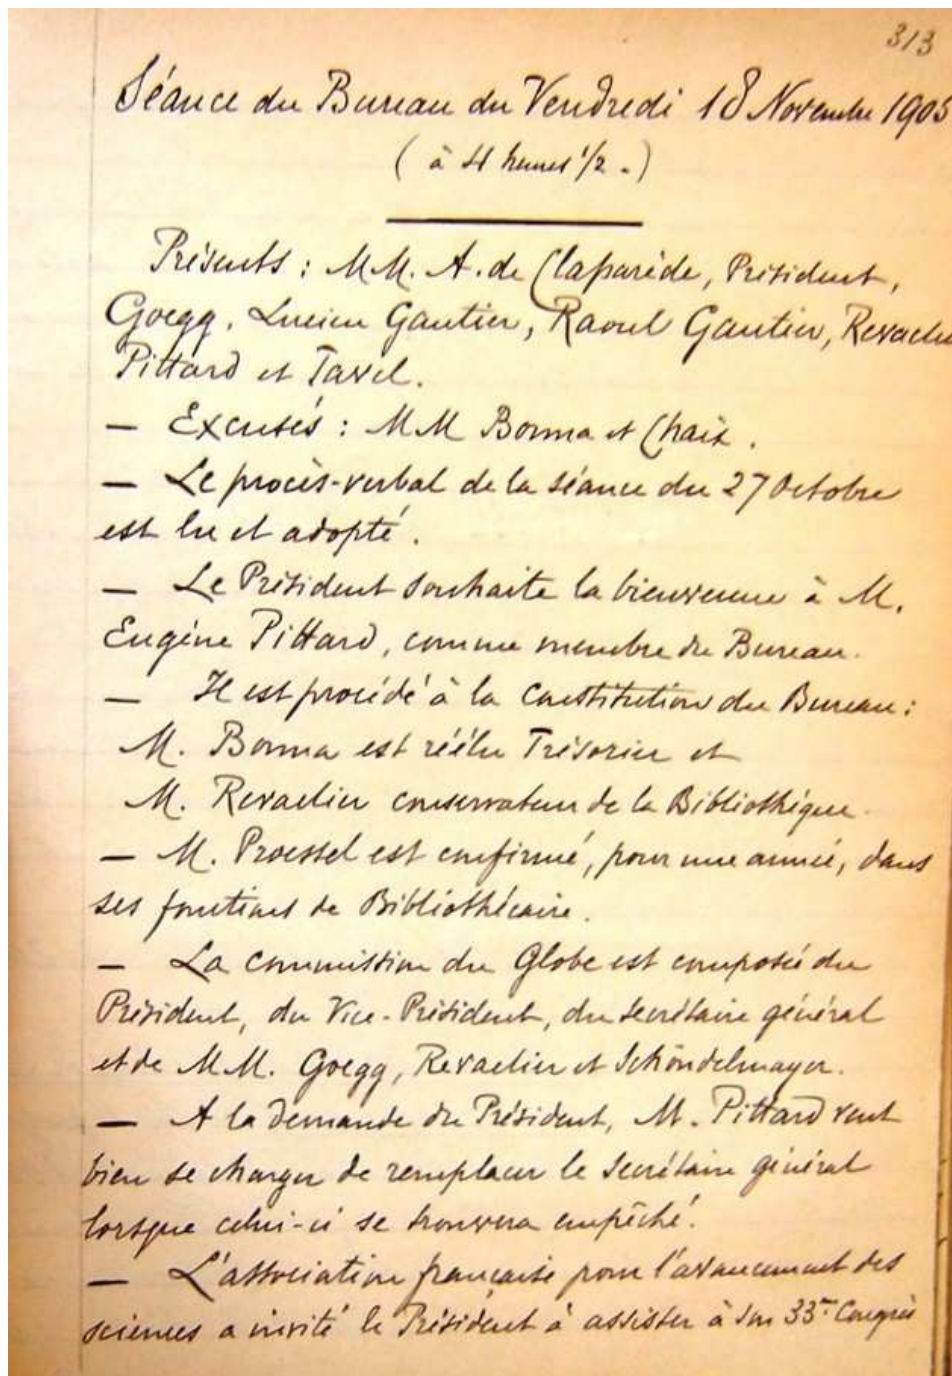 313
Séance du Bureau du Vendredi 18 Novembre 1905
(à 4 heures 1/2.)
Présents : MM. A. de Claparède, Président,
Goegg, Lucien Gautier, Raoul Gautier,
Pittard et Tavel.
— Excusés : MM Bonna et Chaix.
— Le procès-verbal de la séance du 27 Octobre
est lu et adopté.
— Le Président souhaite la bienvenue à M.
Eugène Pittard, comme membre du Bureau.
— Il est procédé à la Constitution du Bureau :
M. Bonna est réélu Trésorier et
M. Revaclier conservateur de la Bibliothèque.
— M. Proessel est confirmé, pour une année, dans
ses fonctions de Bibliothécaire.
— La commission du Globe est composée du
Président, du Vice-Président, du Secrétaire général
et de MM. Goegg, Revaclier et Schöndelmayer.
— A la demande du Président, M. Pittard veut
bien se charger de remplacer le Secrétaire général
lorsque celui-ci se trouvera empêché.
— L'association française pour l'avancement des
sciences a invité le Président à assister à son 33me Congrès